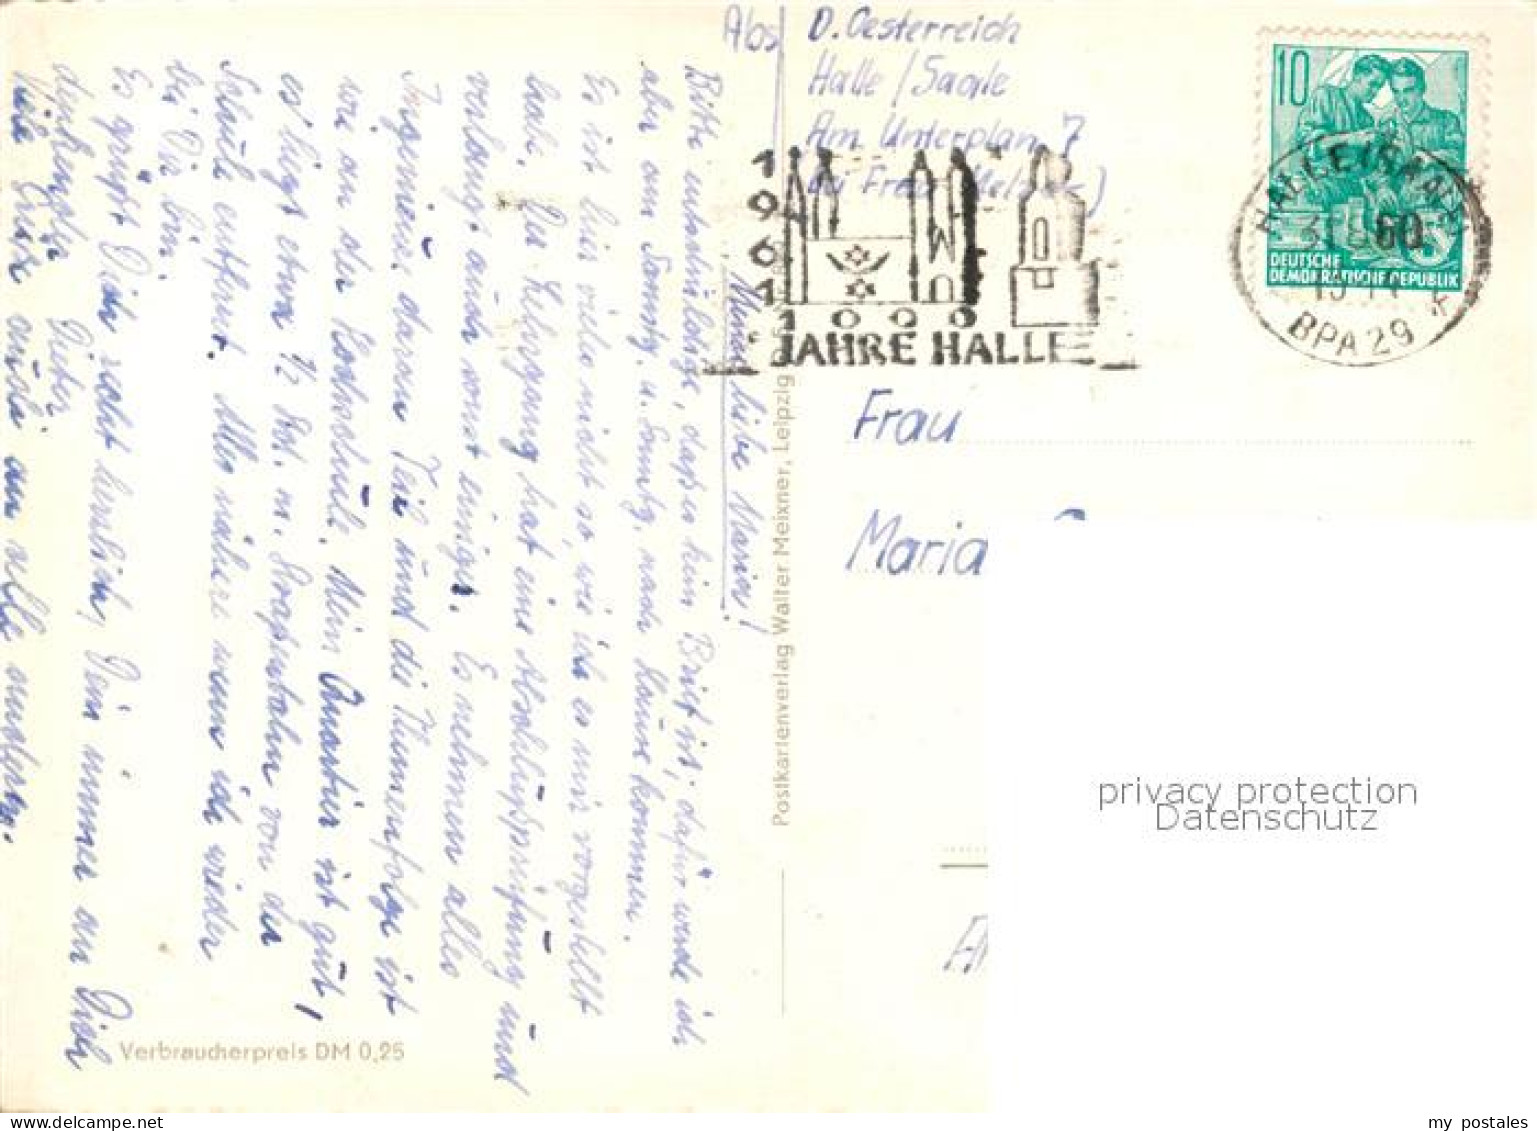 Abs. D. Oesterreich
Halle/Saale
Am Unterplan 7
bei Frau
10
DEUTSCHE
DEMOKRATISCHE REPUBLIK
HALLE (SAALE)
60
BPA 29
1961
1000
JAHRE HALLE
Frau
Maria
Postkartenverlag Walter Meixner, Leipzig
Meine liebe Maria!
Bitte entschuldige, daß es kein Brief ist; dafür werde ich
aber am Sonntg. nach Hause kommen.
Es ist hier vieles nicht so, wie ich es mir vorgestellt
habe. Der Lehrgang hat eine Abschlußprüfung und
verlangt auch sonst einiges. Es nehmen alles
Ingenieure daran Teil und die Themenfolge ist
wie an der Hochschule. Mein Quartier ist gut,
es liegt etwa ½ Std. m. Straßenbahn von der
Schule entfernt. Alles nähere wenn ich wieder
bei Dir bin.
Es grüßt Dich recht herzlich, Dein immer an Dich
denkender Dieter
Viele Grüße auch an alle anderen.
Verbraucherpreis DM 0,25
privacy protection
Datenschutz
my postales